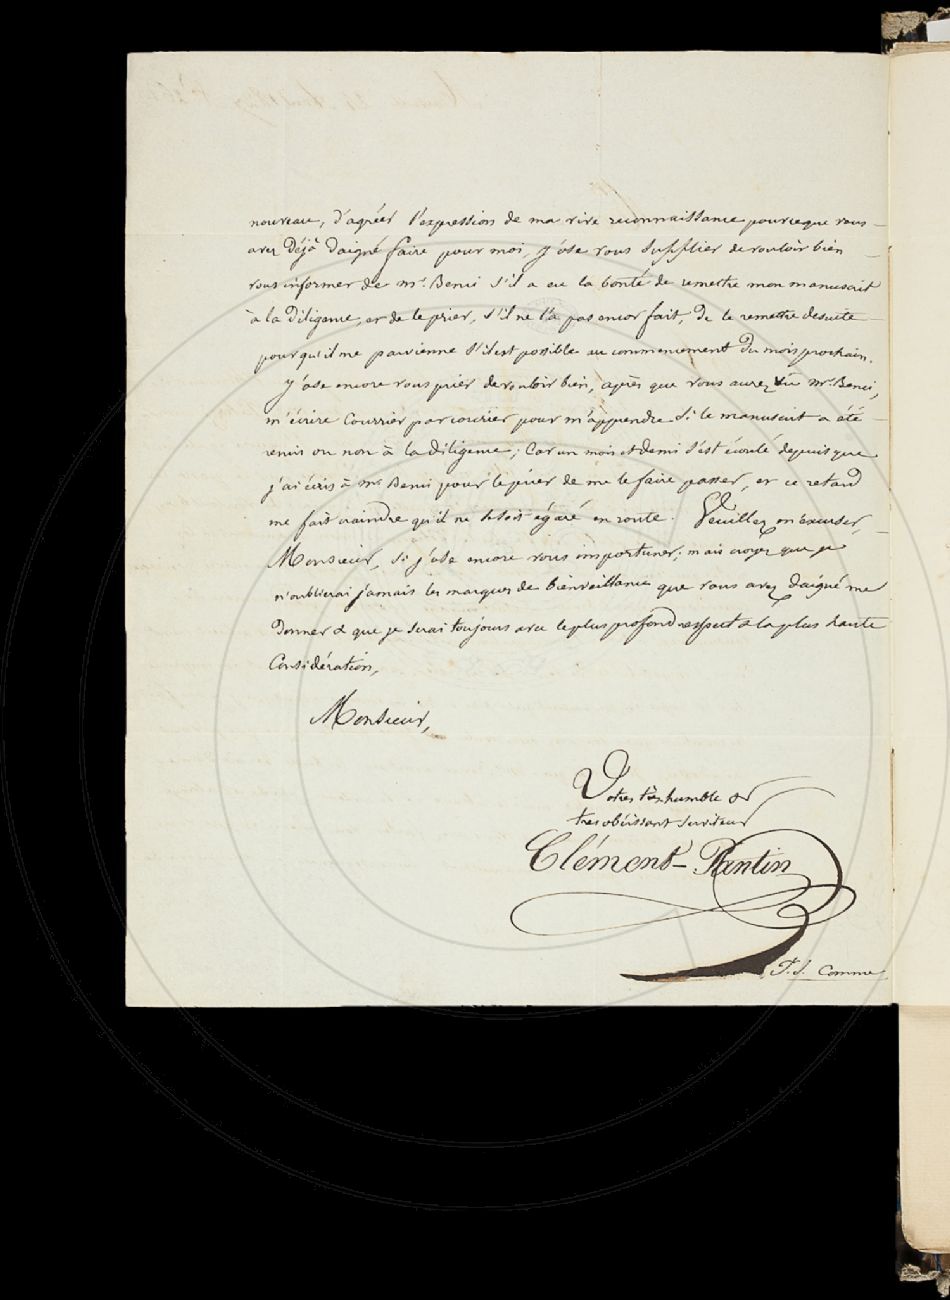 nouveau, d'agréer l'expression de ma vive reconnaissance pour ce que vous
avez déjà daigné faire pour moi, j'ose vous supplier de vouloir bien
vous informer de mr. Benci s'il a eu la bonté de remettre mon manuscrit
à la diligence, et de le prier, s'il ne l'a pas encor fait, de le remettre de suite
pour qu'il me parvienne s'il est possible au commencement du mois prochain.
J'ose encore vous prier de vouloir bien, après que vous aurez vu mr. Benci,
m'écrire Courrier par courrier pour m'apprendre si le manuscrit a été
remis ou non à la diligence; Car un mois et demi s'est écoulé depuis que
j'ai écris à mr Benci pour le prier de me le faire passer, et ce retard
me fait craindre qu'il ne se soit égaré en route. Veuillez m'excuser,
Monsieur, si j'ose encore vous importuner; mais croyez que je
n'oublierai jamais les marques de bienveillance que vous avez daigné me
donner & que je serai toujours avec le plus profond respect & la plus haute
Considération,
Monsieur,
Votre très humble et
tres obéissant serviteur
Clément-Pantin
P. S. Comme